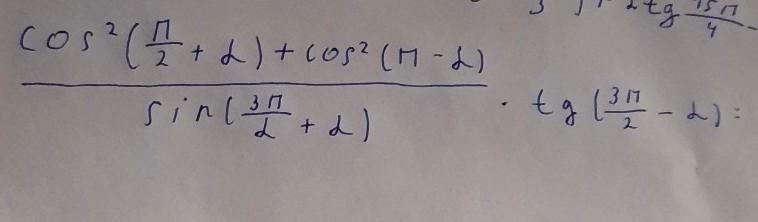 tg 15π/4 -
cos²(π/2 + α) + cos²(π - α)
sin(3π/2 + α)
· tg(3π/2 - α) =